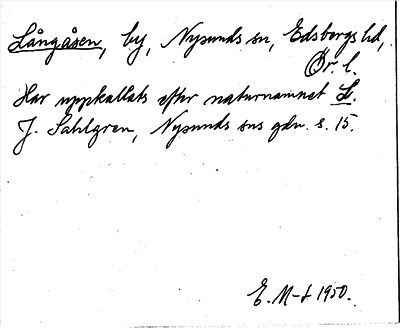 Långåsen, by, Nysunds sn, Edsbergs hd,
Ör. l.
Har uppkallats efter naturnamnet L.
J. Sahlgren, Nysunds sns gdn. s. 15.
E. M-t 1950.